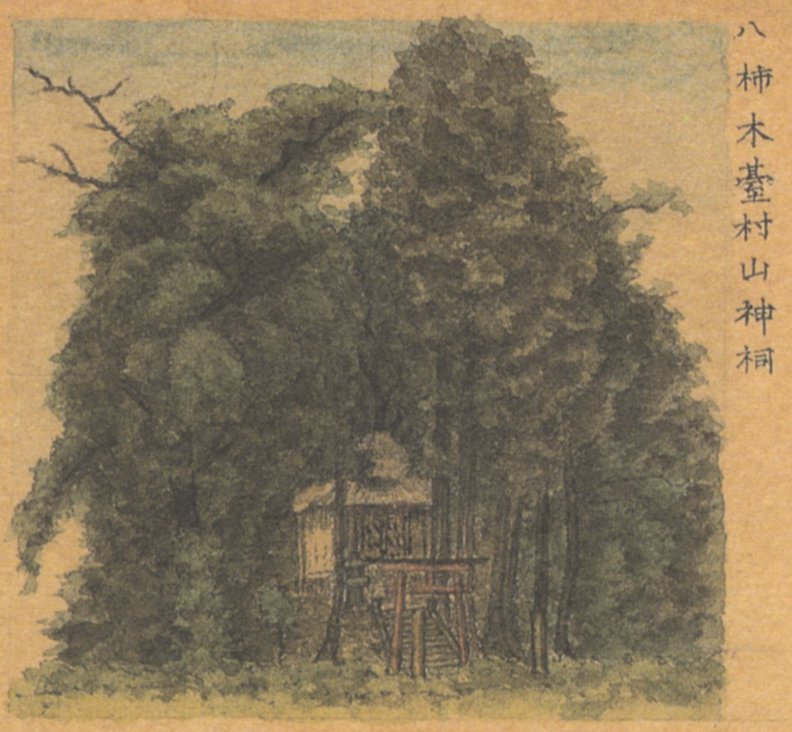 八柿木臺村山神祠